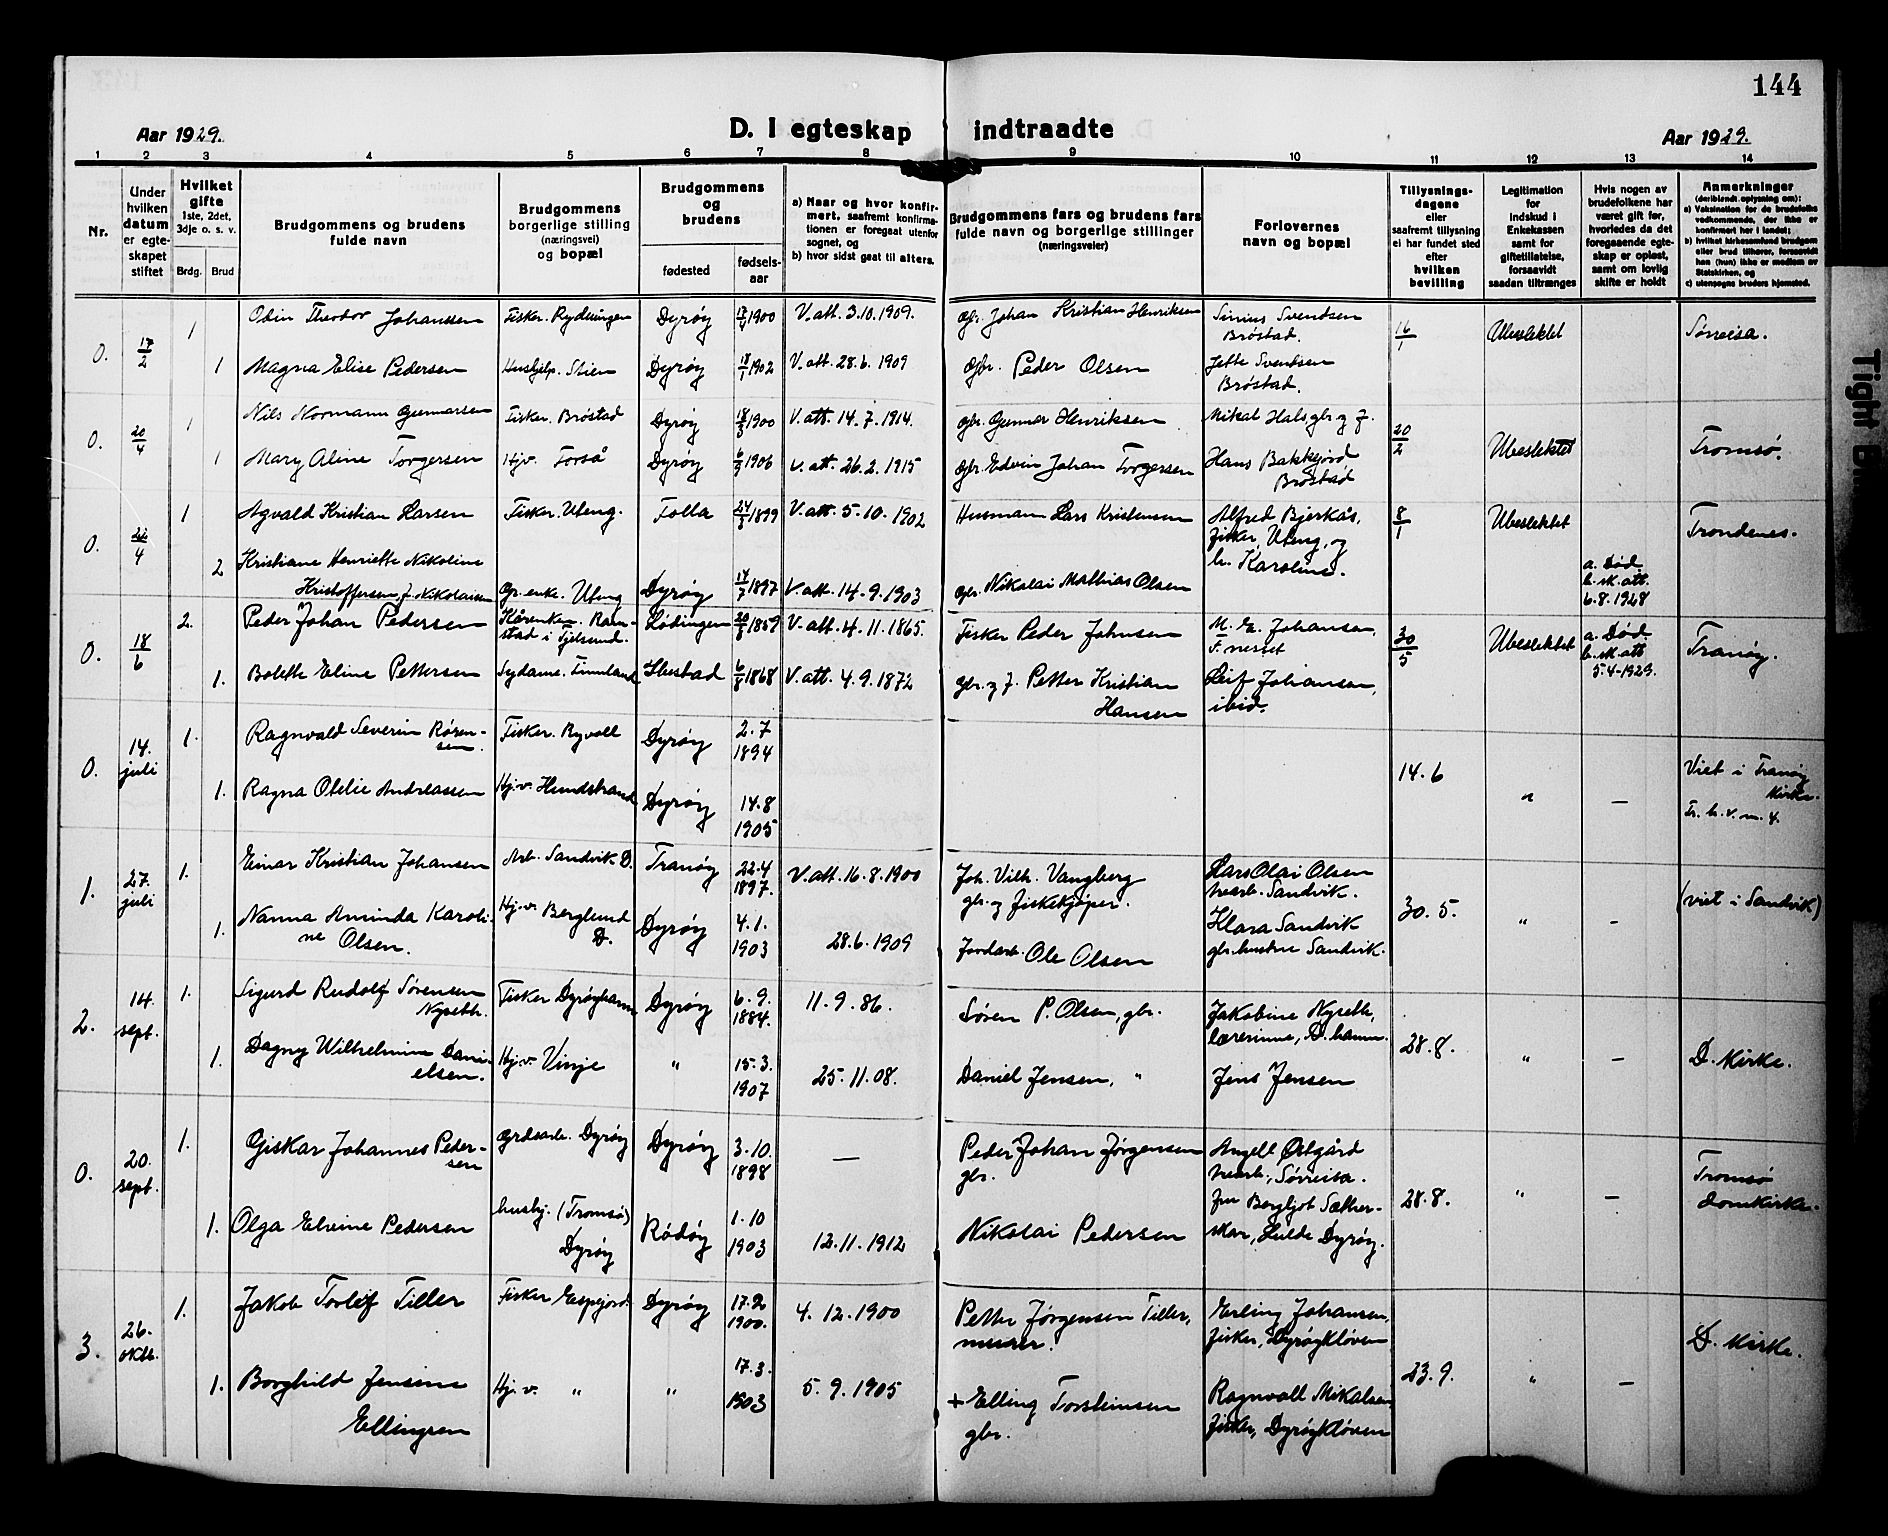 144
Aar 1929.
D. I egteskap indtraadte
Aar 1929.
1 2 3 4 5 6 7 8 9 10 11 12 13 14
Nr.
Under hvilken datum er egteskapet stiftet
Hvilket gifte 1ste, 2det, 3dje o. s. v.
Brdg. Brud
Brudgommens og brudens fulde navn
Brudgommens borgerlige stilling (næringsvei) og bopæl
Brudgommens og brudens
fødested
fødselsaar
a) Naar og hvor konfirmert, saafremt konfirmationen er foregaat utenfor sognet, og
b) hvor sidst gaat til alters.
Brudgommens fars og brudens fars fulde navn og borgerlige stillinger (næringsveier)
Forlovernes navn og bopæl
Tillysningsdagene eller saafremt tillysning ei har fundet sted efter hvilken bevilling
Legitimation for indskud i Enkekassen samt for giftetillatelse, forsaavidt saadan tiltrænges
Hvis nogen av brudefolkene har været gift før, hvorledes da det foregaaende egteskap er opløst, samt om lovlig skifte er holdt
Anmerkninger (deriblandt oplysning om):
a) Vaksination for de brudefolks vedkommende, der ikke er konfirmert her i landet;
b) hvilket kirkesamfund brudgom eller brud tilhører, forsaavidt han (hun) ikke er medlem av Statskirken, og
c) utensogns brudens hjemsted.
0. 17/2 1 Odin Theodor Johanssen Fisker. Dyrøy 17/4 1900 V. att. 3.10.1909. gbr. Johan Kristian Henriksen Sinius Svendsen Brøstad. 16/1 Ubeslektet Sørreisa.
1 Magna Elise Pedersen Hushjelp. Stien Dyrøy 18/1 1902 V. att. 28.6.1909 gbr. Peder Olsen Jette Svendsen Brøstad.
0. 20/4 1 Nils Normann Gunnarsen Fisker. Brøstad Dyrøy 18/3 1900 V. att. 14.7.1914. gbr. Gunnar Henriksen Mikal Hals gbr. og f. 20/2 Ubeslektet Tromsø.
1 Mary Aline Torgersen Hjv. Forså Dyrøy 6/3 1906 V. att. 26.2.1915 gbr. Edvin Johan Torgersen Hans Bakkejord Brøstad
0. 22/4 1 Agvald Kristian Larsen Fisker. Uteng. Folla 24/3 1899 V. att. 5.10.1902 Husmann Lars Kristensen Alfred Bjerkås, fisker, Uteng, og h. Karoline. 8/1 Ubeslektet Trondenes.
2 Kristiane Henriette Nikoline Kristoffersen, f. Nikolaisen Gr. enke. Uteng Dyrøy 17/7 1897 V. att. 14.9.1903 gbr. Nikolai Mathias Olsen a. Død b. sk. att. 6.8.1928
0. 18/6 2. Peder Johan Pedersen Kårenkem. Ramstad i Tjelsund. Lødingen 20/8 1859 V. att. 4.11.1865. Fisker Peder Johnsen M. E. Johansen, nesset 30/5 Ubeslektet a. Død b. sk. att. 5.4.1929. Tranøy.
1. Bolette Eline Pettersen Sydame. Finnland Ibestad 6/8 1868 V. att. 4.9.1872 gbr. og f. Petter Kristian Hansen Leif Johansen, ibid.
0. 14. juli 1. Ragnvald Severin Rørensen. Fisker. Ryvoll Dyrøy 2.7 1894 14.6 " — Viet i Tranøy Kirke.
Tr. h. v. m. 4.
1. Ragna Otelie Andreassen Hj.v. Hundstrand Dyrøy 14.8 1905
1. 27. juli 1. Einar Kristian Johansen Arb. Sandvik D. Tranøy 22.4 1897. V. att. 16.8.1900 Joh. Vilh. Vangberg gbr. og fiskekjøper. Lars Olai Olsen Sandvik. 30.5. " — (viet i Sandvik)
1. Nanna Aminda Karoline Olsen. Hj.v. Berglund D. Dyrøy 4.1. 1903 28.6.1909 Jordarb. Ole Olsen Klara Sandvik gbr. hustru Sandvik.
2. 14. sept. 1. Sigurd Rudolf Sørensen Nyseth. Fisker Dyrøyhamn Dyrøy 6.9. 1884. 11.9.86. Søren P. Olsen, gbr. Jakobine Nyseth, lærerinne, D. hamn. 28.8. " — D. Kirke.
1. Dagny Wilhelmine Danielsen. Hj.v. Vinje " 15.3. 1907 25.11.08. Daniel Jensen, " Jens Jensen
0. 20. sept. 1. Giskar Johannes Pedersen Grdsarb. Dyrøy Dyrøy 3.10. 1898 — Peder Johan Jørgensen gbr. Angell Østgård Sørreisa. 28.8. " — Tromsø domkirke.
1. Olga Elvine Pedersen hushj. (Tromsø) Dyrøy Rødøy 1.10 1903 12.11.1912 Nikolai Pedersen fru Bergljot Sætherskar, Hulde Dyrøy.
3. 26. oktb. 1. Jakob Torlef Tiller Fisker Espejord Dyrøy 17.2 1900. 4.12.1900 Petter Jørgensen Tiller, murer. Erling Johansen, fisker, Dyrøykløven 23.9. " — D. Kirke.
1. Borghild Jensine Ellingsen Hj.v. " " 17.3. 1903 5.9.1905 + Elling Torsteinsen gbr. Ragnvall Mikalsen fisker, Dyrøykløven
Tight B